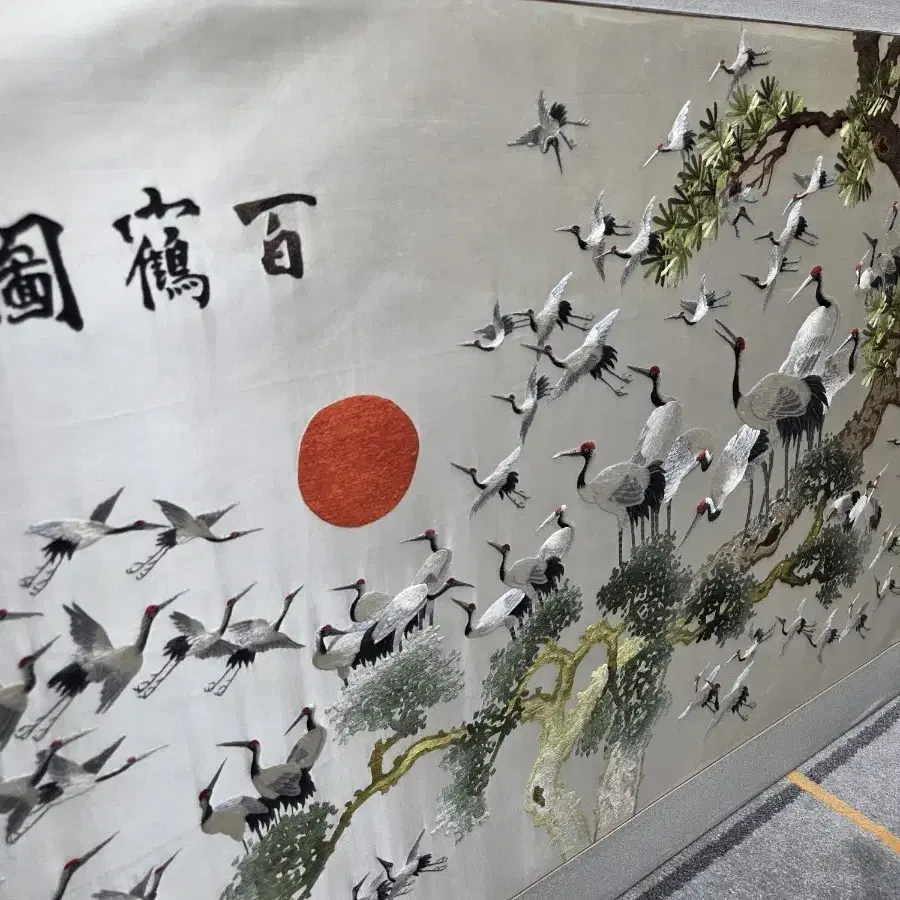 百鶴圖